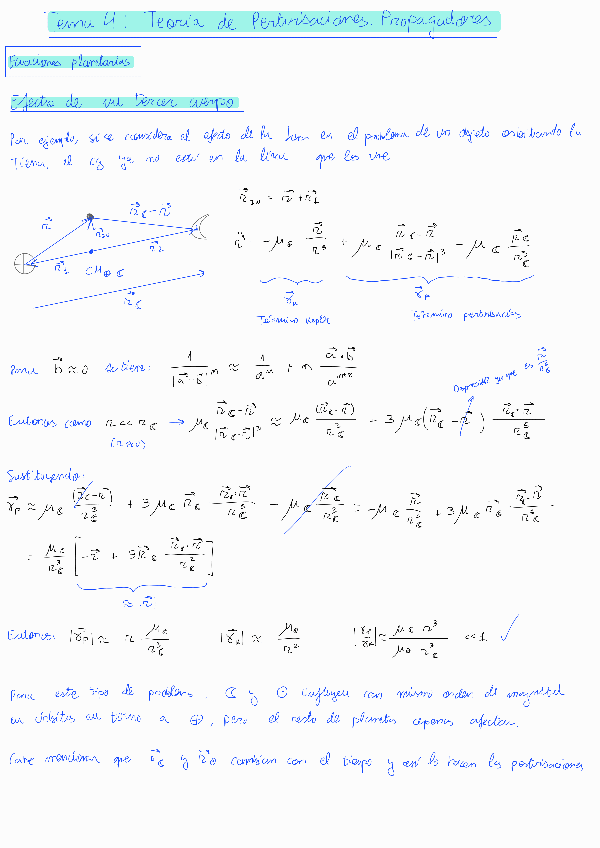 Tema 4: Teoría de Perturbaciones. Propagadores
Ecuaciones planetarias
Efecto de un tercer cuerpo
Por ejemplo, si se considera el efecto de la Luna en el problema de un objeto orbitando la
Tierra, el cg ya no está en la línea que los une
r⃗
r⃗☾ - r⃗
r⃗₂
r⃗₁
CM⊕☾
r⃗☾
r̈⃗ = -μ⊕ r⃗/r³ + μ☾ (r⃗☾ - r⃗)/|r⃗☾ - r⃗|³ - μ☾ r⃗☾/r☾³
Término kepler
término perturbación
Para b⃗ ≈ 0 se tiene: 1/|a⃗-b⃗|ⁿ ≈ 1/aⁿ + n (a⃗·b⃗)/aⁿ⁺²
Despreciable ya que es
Entonces como r << r☾ → μ☾ (r⃗☾ - r⃗)/|r⃗☾ - r⃗|³ ≈ μ☾ (r⃗☾ - r⃗)/r☾³ - 3μ☾(r⃗☾ - r⃗) (r⃗☾·r⃗)/r☾⁵
Sustituyendo:
γ⃗ₚ ≈ μ☾ (r⃗☾ - r⃗)/r☾³ + 3μ☾ r⃗☾ (r⃗☾·r⃗)/r☾⁵ - μ☾ r⃗☾/r☾³ = -μ☾ r⃗/r☾³ + 3μ☾ r⃗☾ (r⃗☾·r⃗)/r☾⁵
= μ☾/r☾³ [-r⃗ + 3r⃗☾ (r⃗☾·r⃗)/r☾²]
≈ r⃗
Entonces: |γ⃗ₚ| ≈ r μ☾/r☾³ |γ⃗ₖ| ≈ μ⊕/r² |γₚ/γₖ| ≈ μ☾ r³/μ⊕ r☾³ << 1 ✓
Para este tipo de problema, ☾ y ☉ influyen con mismo orden de magnitud
en órbitas en torno a ⊕, pero el resto de planetas apenas afectan.
Cabe mencionar que r⃗☾ y r⃗☉ cambian con el tiempo y así lo hacen las perturbaciones